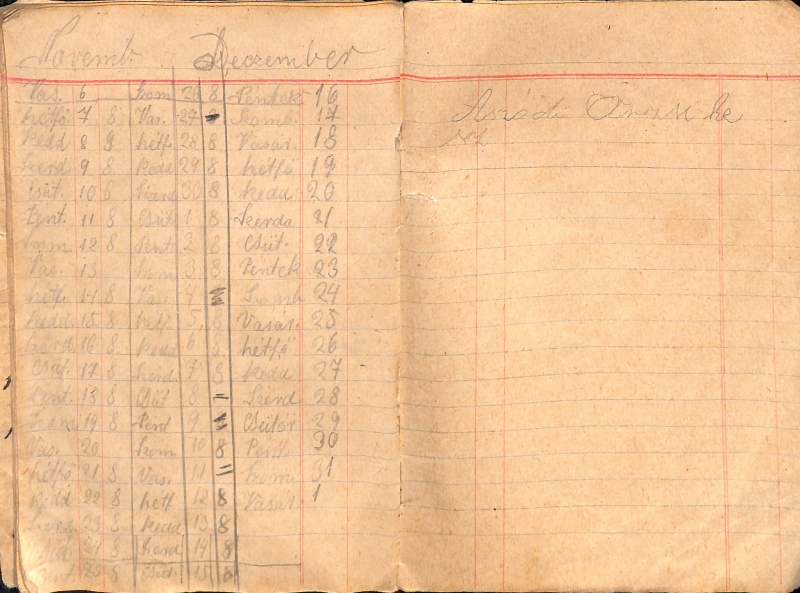 Novemb. Deczember
Vas. 6 Szom 26 8 Péntek 16
hétfő 7 8 Vas. 27 Szomb. 17
kedd 8 8 hétf. 28 8 Vasár. 18
szerd. 9 8 kedd 29 8 hétfő 19
Csüt. 10 8 Szerd 30 8 kedd 20
Pent. 11 8 Csüt 1 8 Szerda 21
Szom 12 8 Pent 2 8 Csüt. 22
Vas. 13 Szom 3 8 Péntek 23
hétf. 14 8 Vas. 4 Szomb 24
kedd. 15 8 hétf. 5 8 Vasár. 25
szerd. 16 8 kedd 6 8 hétfő 26
Csüt. 17 8 Szerd. 7 8 kedd 27
Pent. 18 8 Csüt 8 = Szerd 28
Szom. 19 8 Pent 9 Csüter 29
Vas. 20 Szom. 10 8 Pent. 30
hétfő 21 8 Vas. 11 = Szom. 31
kedd 22 8 hétf 12 8 Vasár. 1
Szerd 23 8 kedd 13 8
Csüt. 24 8 Szerd 14 8
Pent. 25 8 Csüt. 15 8